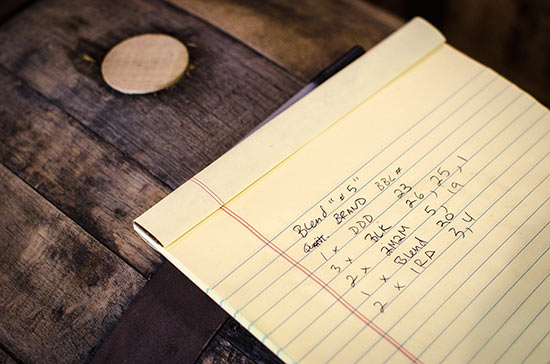 Blend "#5"
BRAND BBL#
1 x DDD 23
3 x BLK 26, 25, 1
2 x 2M2M 5, 19
1 x Blend 20
2 x IRA 3, 4